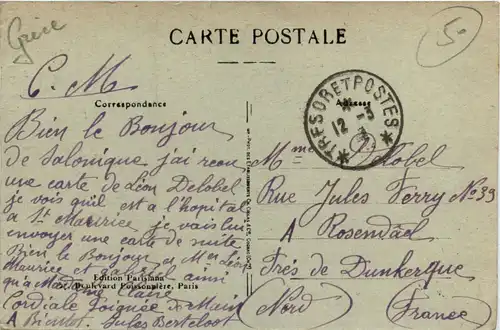 Grèce
5-
CARTE POSTALE
C. M
Correspondance
Adresse
TRESOR ET POSTES
12
Bien le Bonjour
de Salonique j'ai recu
une carte de Léon Delobel
je vois qu'il est a l'hopital
a St Maurice je vais lui
envoyer une carte de suite
Bien le Bonjour a Mme Léon
Maurice et gabriel ainsi
qu'a
Cordiale Poignée de Main
A Bientot. Jules Berteloot
Edition Parisiana
Boulevard Poissonnière, Paris
Mme Delobel
Rue Jules Ferry No 33
A Rosendaël
Près de Dunkerque
(Nord) (France)